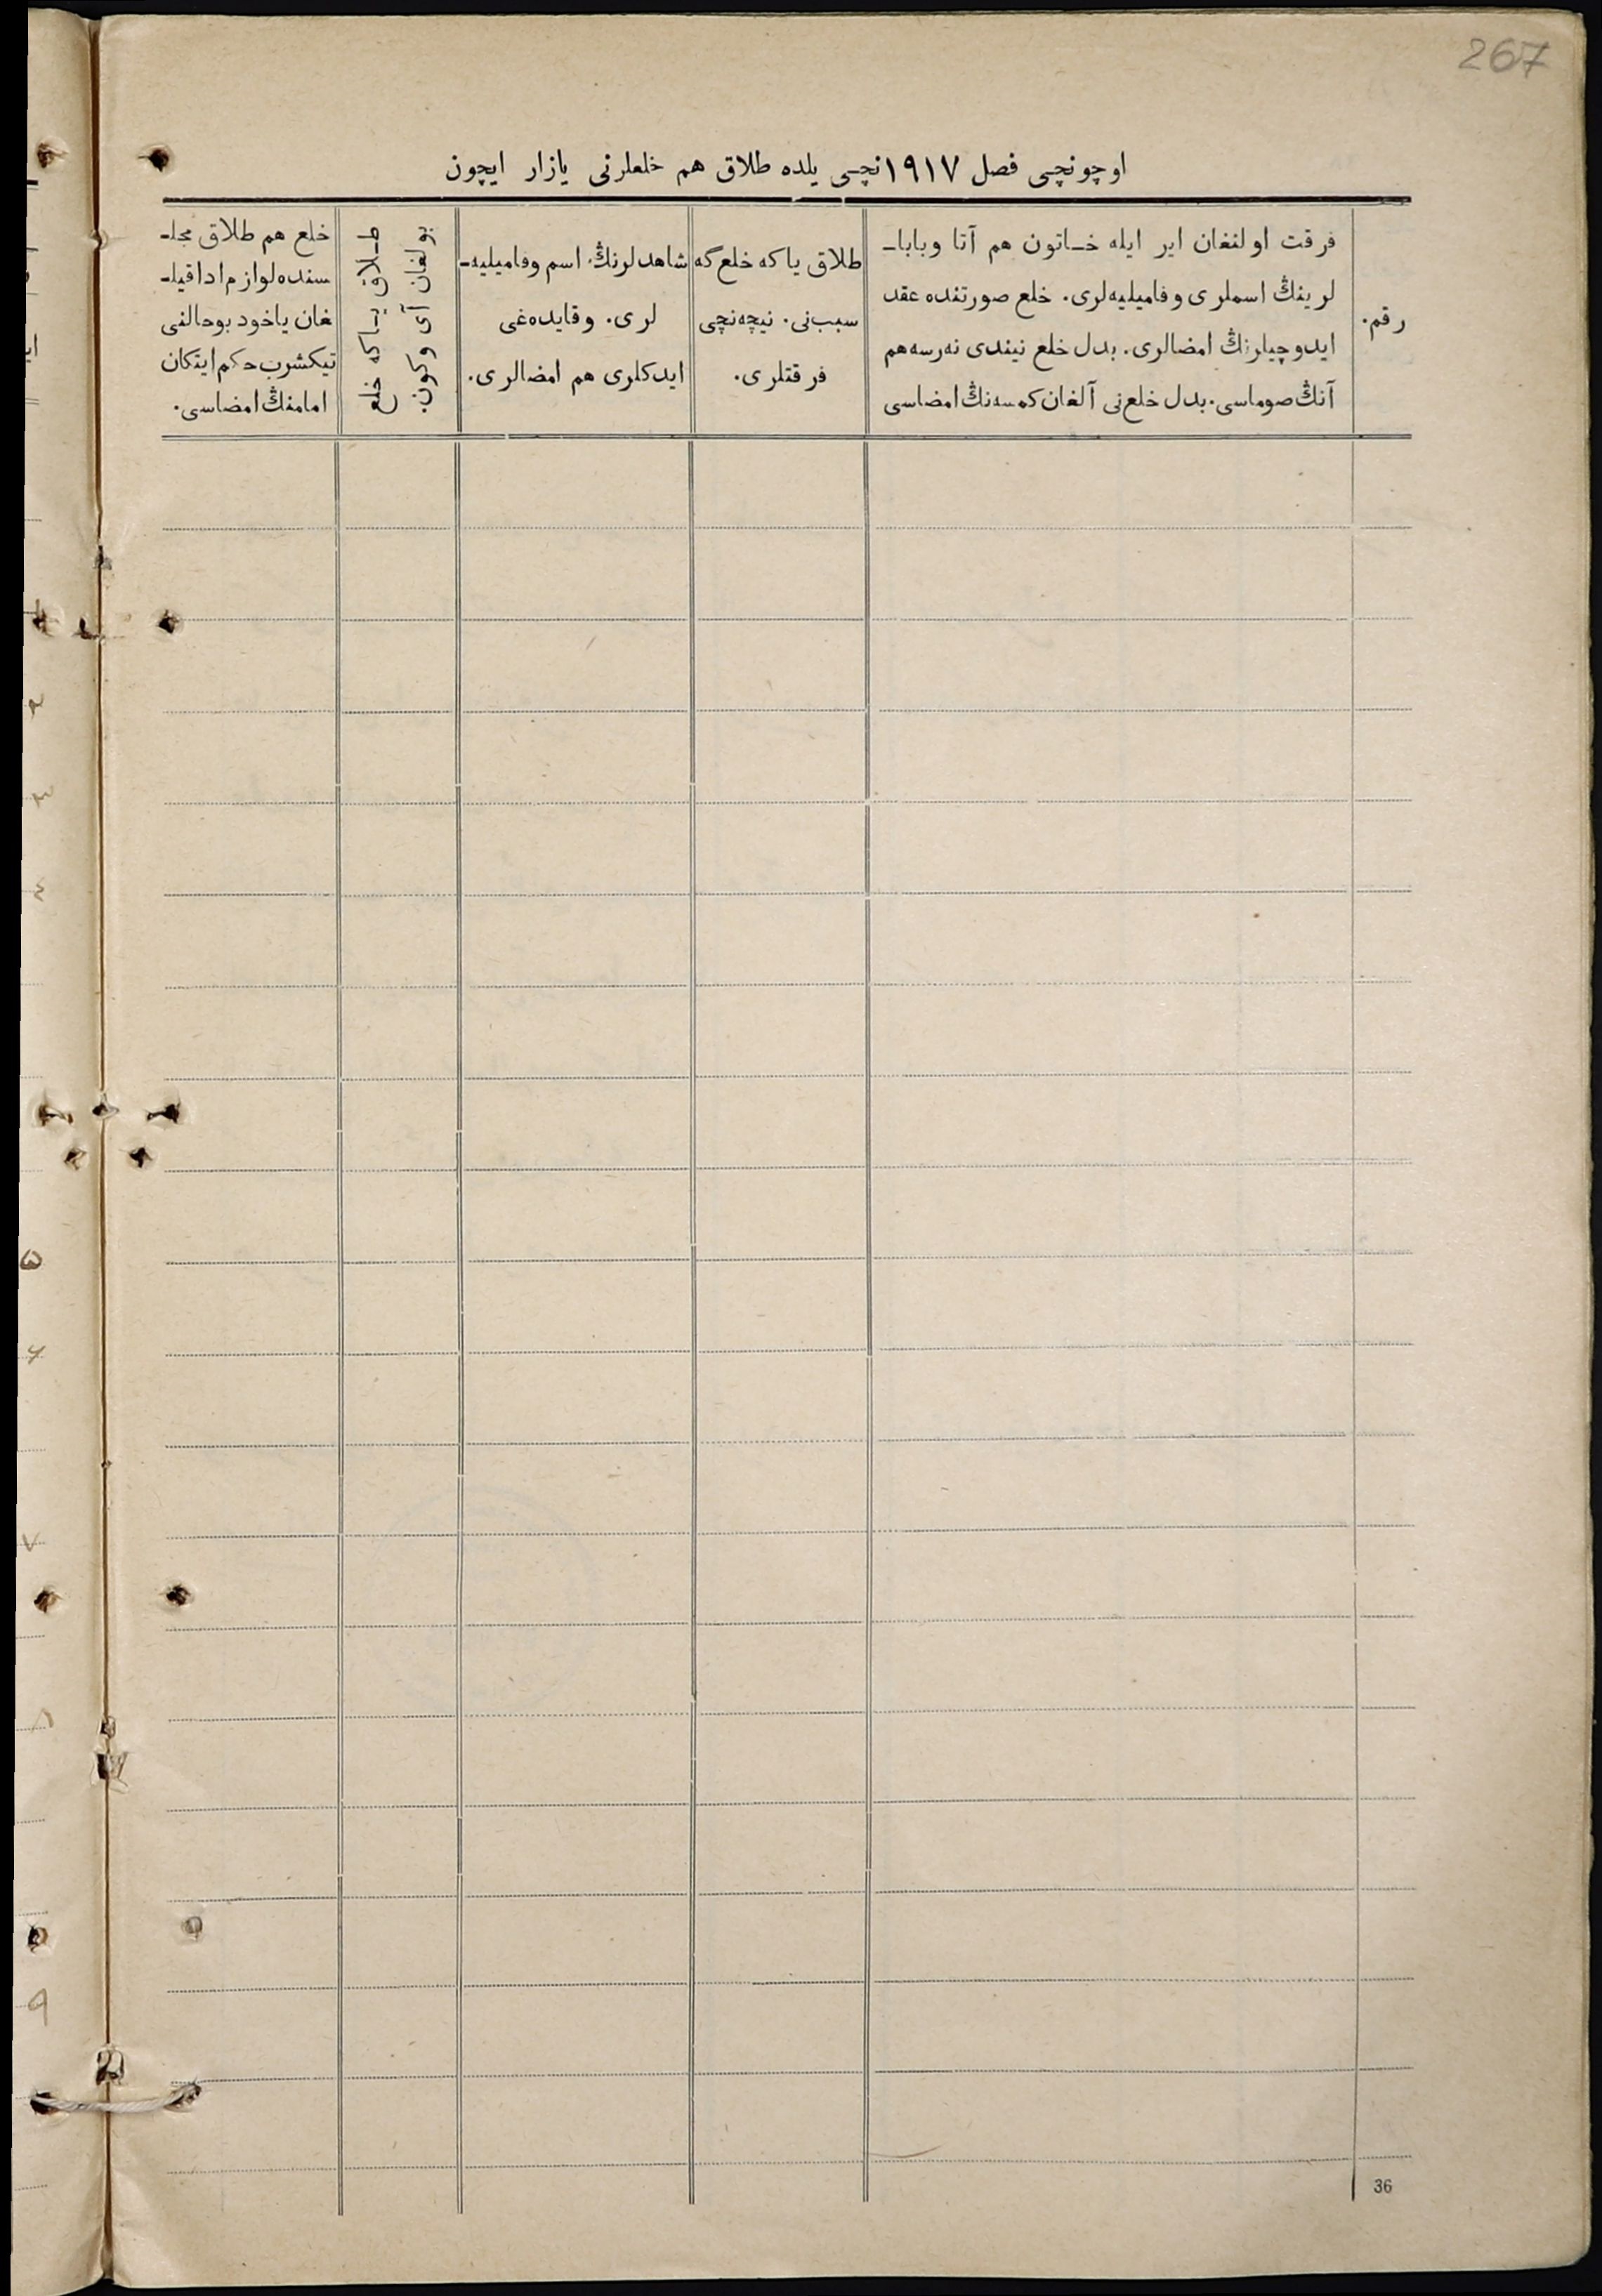 267
اوچونچی فصل ١٩١٧نچی یلده طلاق هم خلعلرنی یازار ایچون
رقم.
فرقت اولنغان ایر ایله خاتون هم آتا وبابا-
لرینڭ اسملری وفامیلیه‌لری. خلع صورتنده عقد
ایدوچیلرنڭ امضالری. بدل خلع نیندی نه‌رسه هم
آنڭ صوماسی. بدل خلع‌نی آلغان کمسه‌نڭ امضاسی
طلاق یا که خلع گه
سبب‌نی. نیچه‌نچی
فرقتلری.
شاهدلرنڭ اسم وفامیلیه-
لری. وقایده‌غی
ایدکلری هم امضالری.
طلاق یا که خلع
بولغان آی و کون.
خلع هم طلاق مجل-
سنده لوازم ادا قیل-
غان یاخود بو حالنی
تیکشرب حکم ایتکان
امامنڭ امضاسی.
٢
٣
٤
٥
٦
٧
٨
٩
36